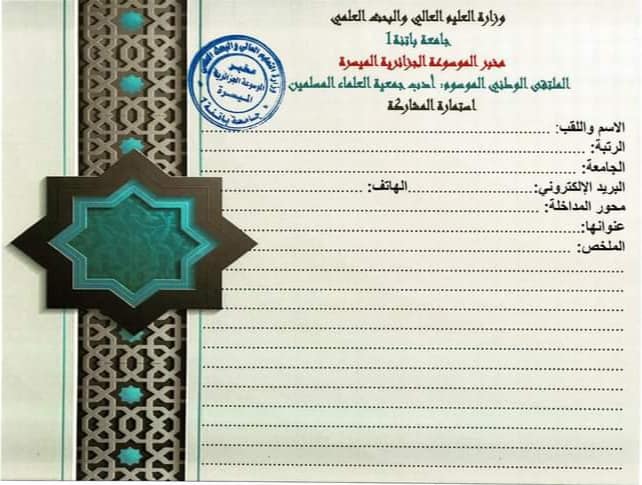 وزارة العليم العالي والبحث العلمي
جامعة باتنة1
مخبر الموسوعة الجزائرية الميسرة
الملتقى الوطني الموسوم: أدب جمعية العلماء المسلمين
استمارة المشاركة
وزارة التعليم العالي والبحث العلمي
مخبر
الموسوعة الجزائرية
الميسرة
جامعة باتنة 1
الاسم واللقب:
الرتبة:
الجامعة:
البريد الإلكتروني: الهاتف:
محور المداخلة:
عنوانها:
الملخص: